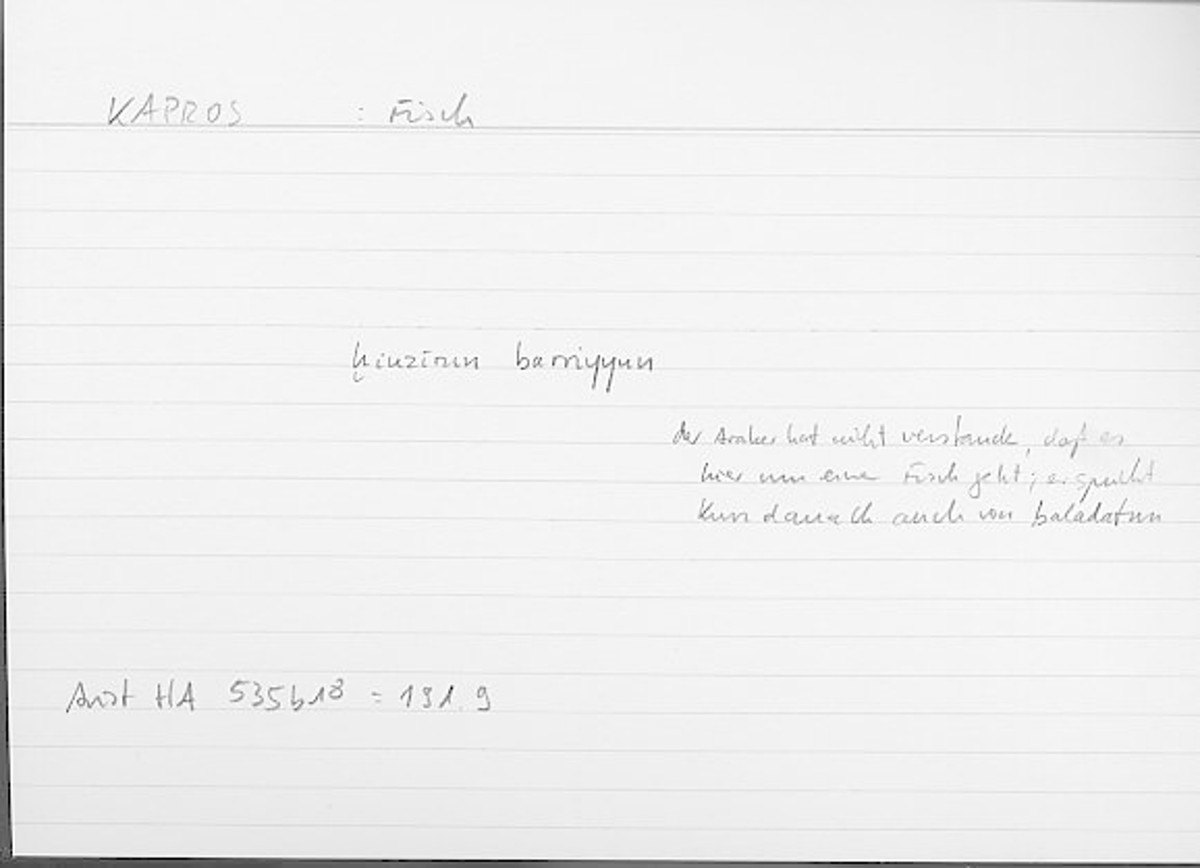 KAPROS : Fisch
ḫinzīrun barriyyun
der Araber hat nicht verstanden, daß es
hier um einen Fisch geht; er spricht
kurz danach auch von baladatun
Arist HA 535b18 = 191.9